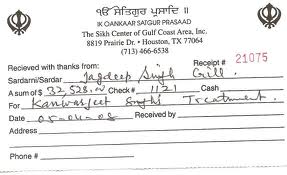 ੴ ਸਤਿਗੁਰ ਪ੍ਰਸਾਦਿ ॥
IK OANKAAR SATGUR PRASAAD
The Sikh Center of Gulf Coast Area, Inc.
8819 Prairie Dr. • Houston, TX 77064
(713) 466-6538
Receipt # 21075
Recieved with thanks from:
Sardarni/Sardar Jagdeep Singh Gill.
A sum of $ 32,528.00 Check # 1121 Cash
For Kanwarjeet Singh's Treatment.
Date 05-04-08
Address
Phone #